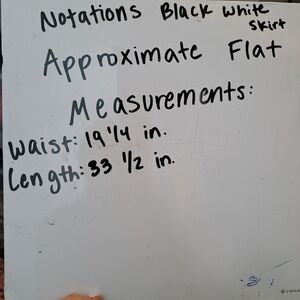 Notations Black White
Skirt
Approximate Flat
Measurements:
Waist: 19 1/4 in.
Length: 33 1/2 in.